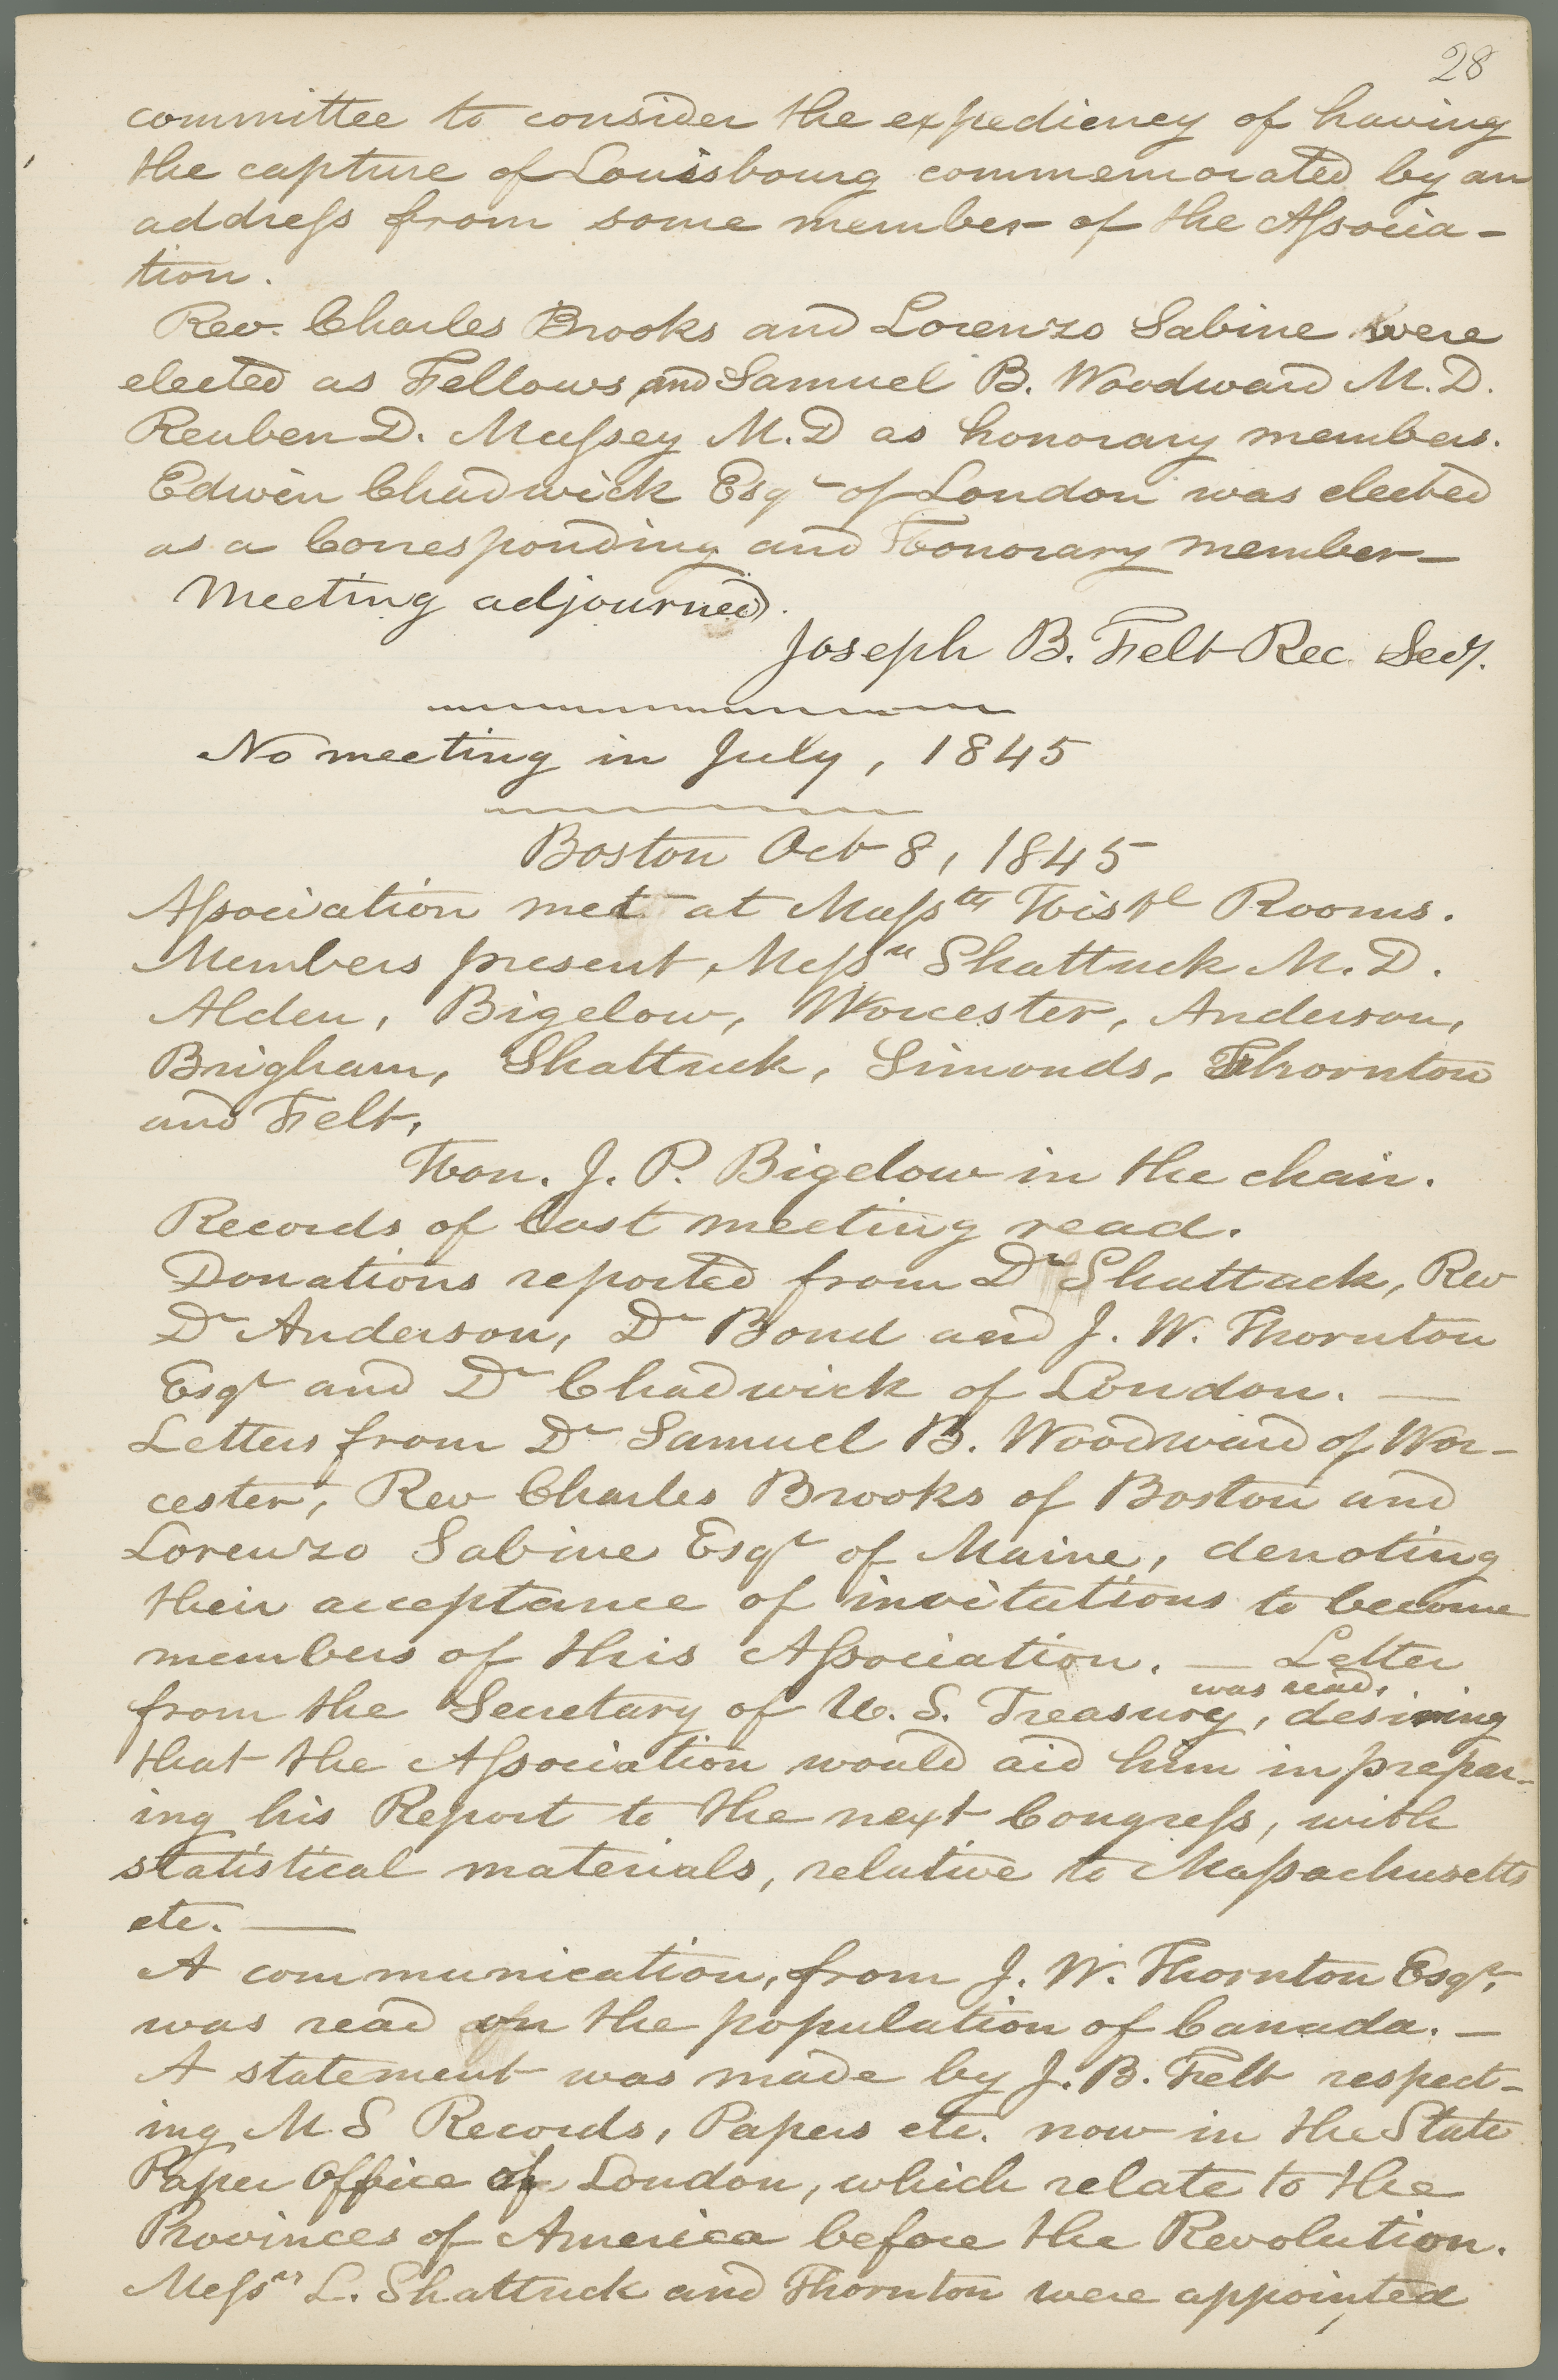 28
committee to consider the expediency of having
the capture of Louisbourg commemorated by an
address from some member of the Associa-
tion.
Rev. Charles Brooks and Lorenzo Sabine were
elected as Fellows, and Samuel B. Woodward M.D.
Reuben D. Mussey M.D as honorary members.
Edwin Chadwick Esqr of London was elected
as a Corresponding and Honorary member—
Meeting adjourned.
Joseph B. Felt Rec. Secy.
No meeting in July, 1845
Boston Oct 8, 1845
Association met at Massts Histl Rooms.
Members present, Messrs Shattuck M.D.
Alden, Bigelow, Worcester, Anderson,
Brigham, Shattuck, Simonds, Thornton
and Felt.
Hon. J. P. Bigelow in the chair.
Records of last meeting read.
Donations reported from Dr Shattuck, Rev
Dr Anderson, Dr Bond and J. W. Thornton
Esqr and Dr Chadwick of London. —
Letters from Dr Samuel B. Woodward of Wor-
cester, Rev Charles Brooks of Boston and
Lorenzo Sabine Esqr of Maine, denoting
their acceptance of invitations to become
members of this Association. — Letter
was read,
from the Secretary of U. S. Treasury, desiring
that the Association would aid him in prepar-
ing his Report to the next Congress, with
statistical materials, relative to Massachusetts
etc. —
A communication, from J. W. Thornton Esqr,
was read on the population of Canada. —
A statement was made by J. B. Felt respect-
ing M S Records, Papers etc. now in the State
Paper Office of London, which relate to the
Provinces of America before the Revolution.
Messrs L. Shattuck and Thornton were appointed